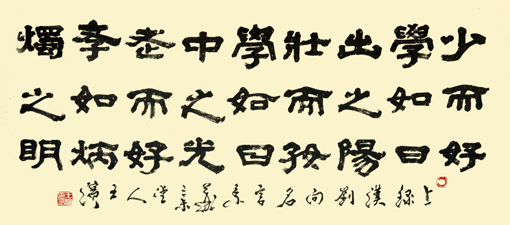 少而好
學如日
出之陽
壯而好
學如日
中之光
老而好
學如炳
燭之明
上錄漢劉向名言